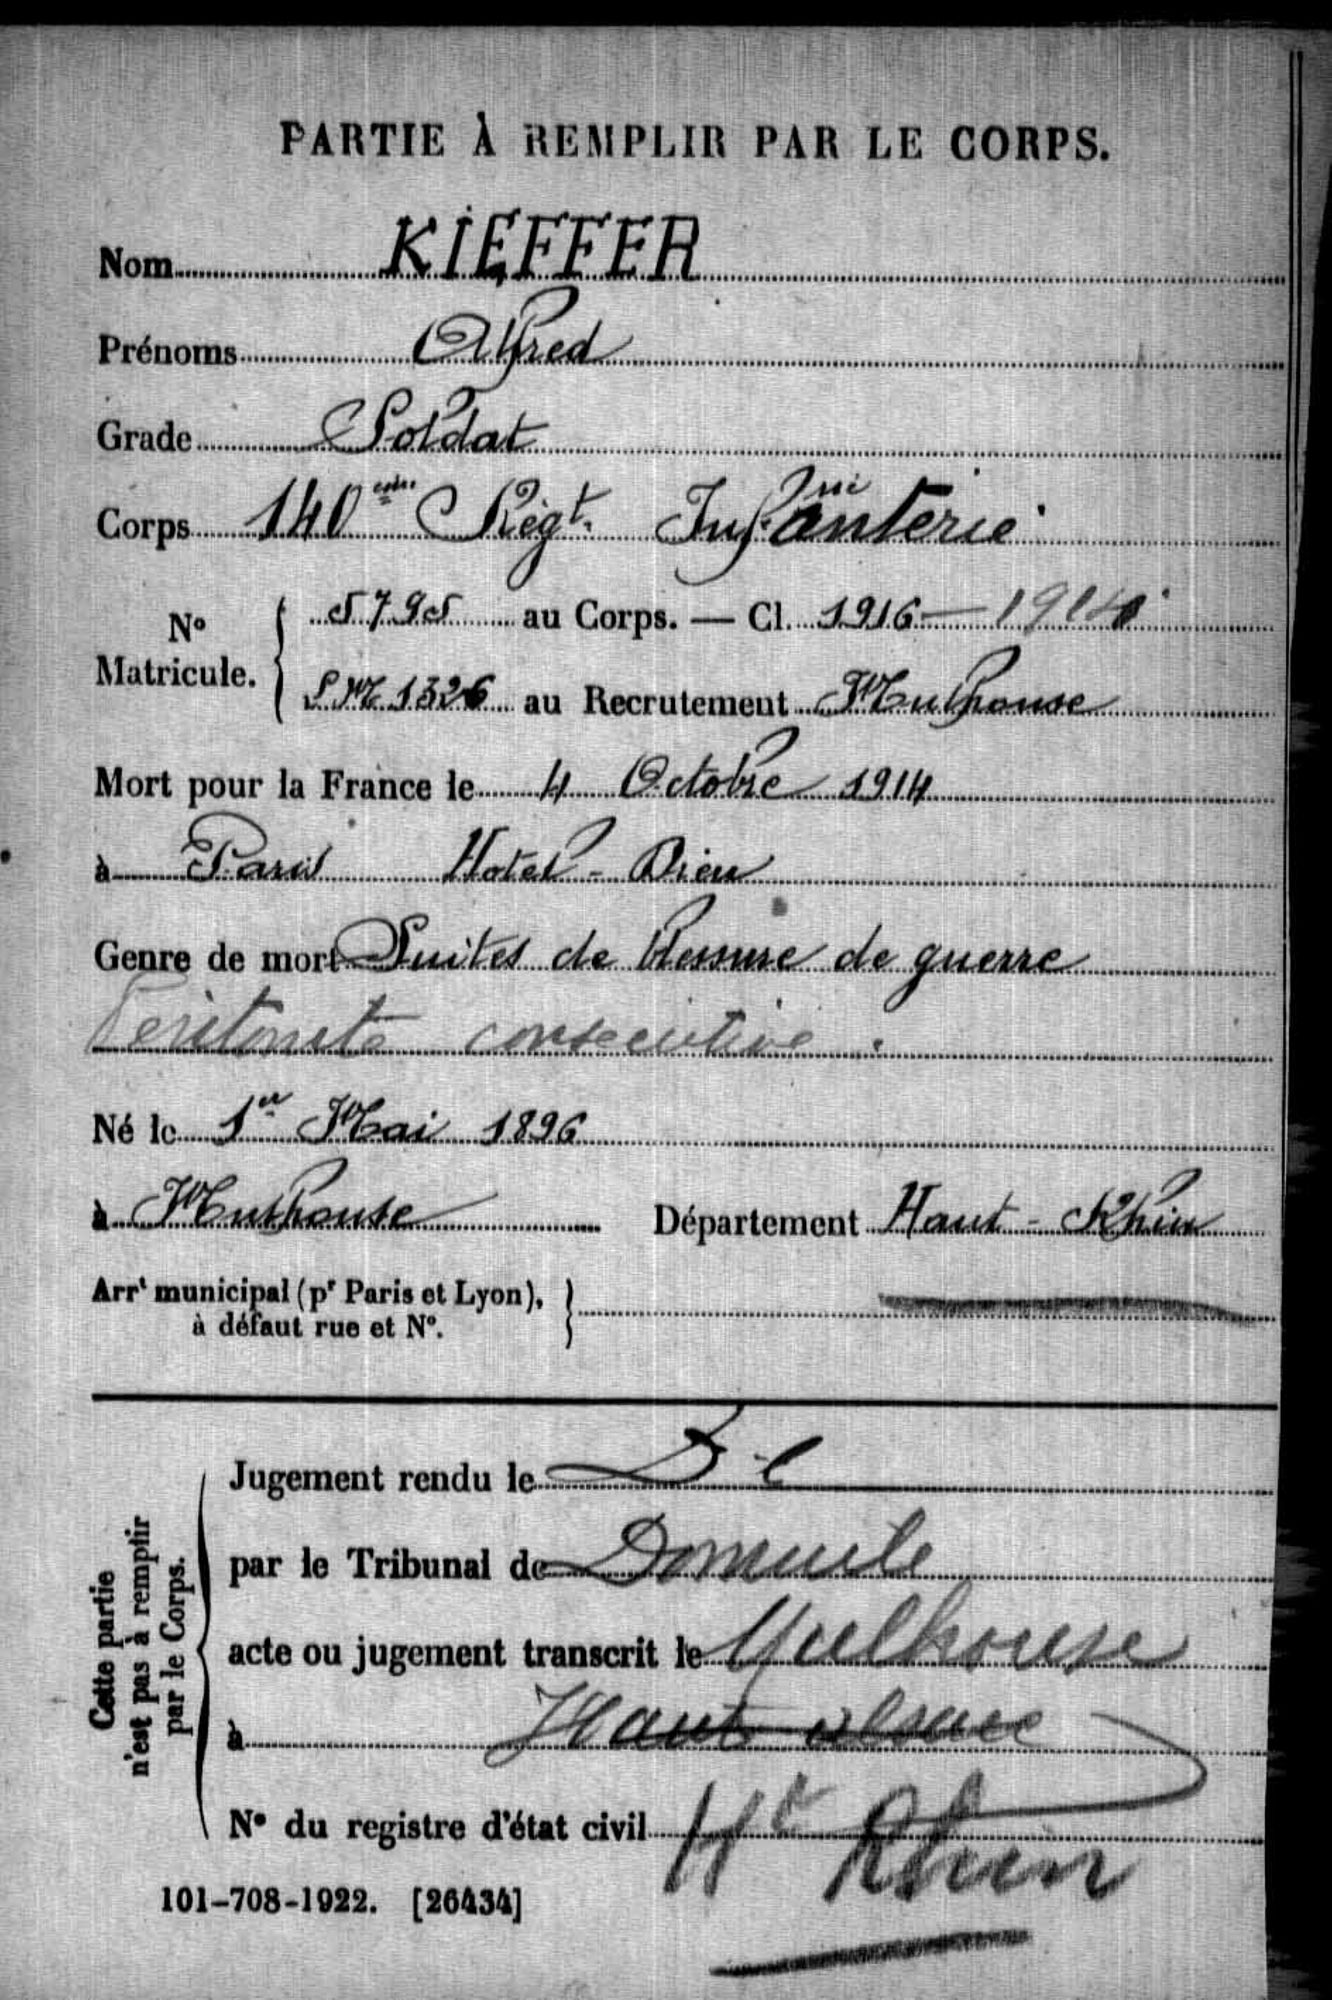 PARTIE À REMPLIR PAR LE CORPS.
Nom KIEFFER
Prénoms Alfred
Grade Soldat
Corps 140ème Régt. Infanterie
No Matricule. 5795 au Corps. — Cl. 1916 — 1914
S.M. 1326 au Recrutement Mulhouse
Mort pour la France le 4 Octobre 1914
à Paris Hotel-Dieu
Genre de mort Suites de blessure de guerre
Peritonite consecutive.
Né le 1er Mai 1896
à Mulhouse Département Haut-Rhin
Arrt municipal (pr Paris et Lyon), à défaut rue et No.
Cette partie n'est pas à remplir par le Corps.
Jugement rendu le
par le Tribunal de Domicile
acte ou jugement transcrit le Mulhouse
à Haute Alsace
No du registre d'état civil Ht Rhin
101-708-1922. [26434]